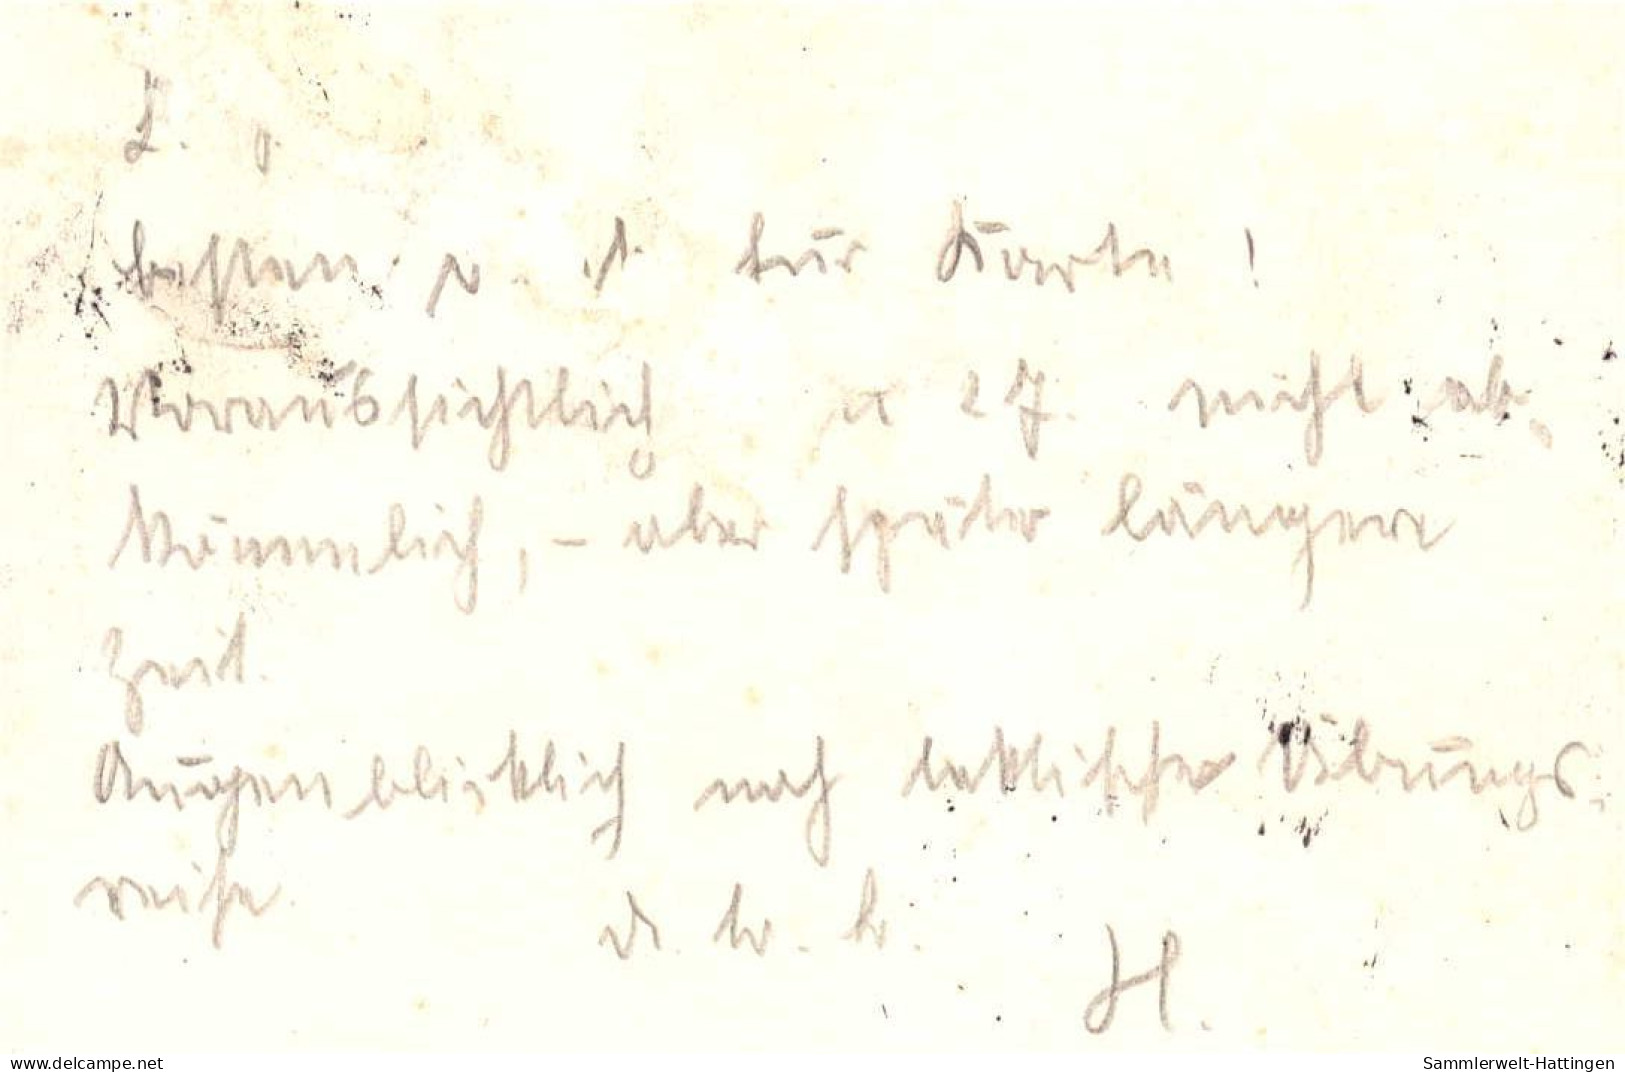 L. J.
besten v. d. für Karte!
Voraussichtlich 27. nicht ab-
kömmlich, – aber später längere
Zeit.
Augenblicklich noch taktische Übungs-
reise.
H.
www.delcampe.net
Sammlerwelt-Hattingen